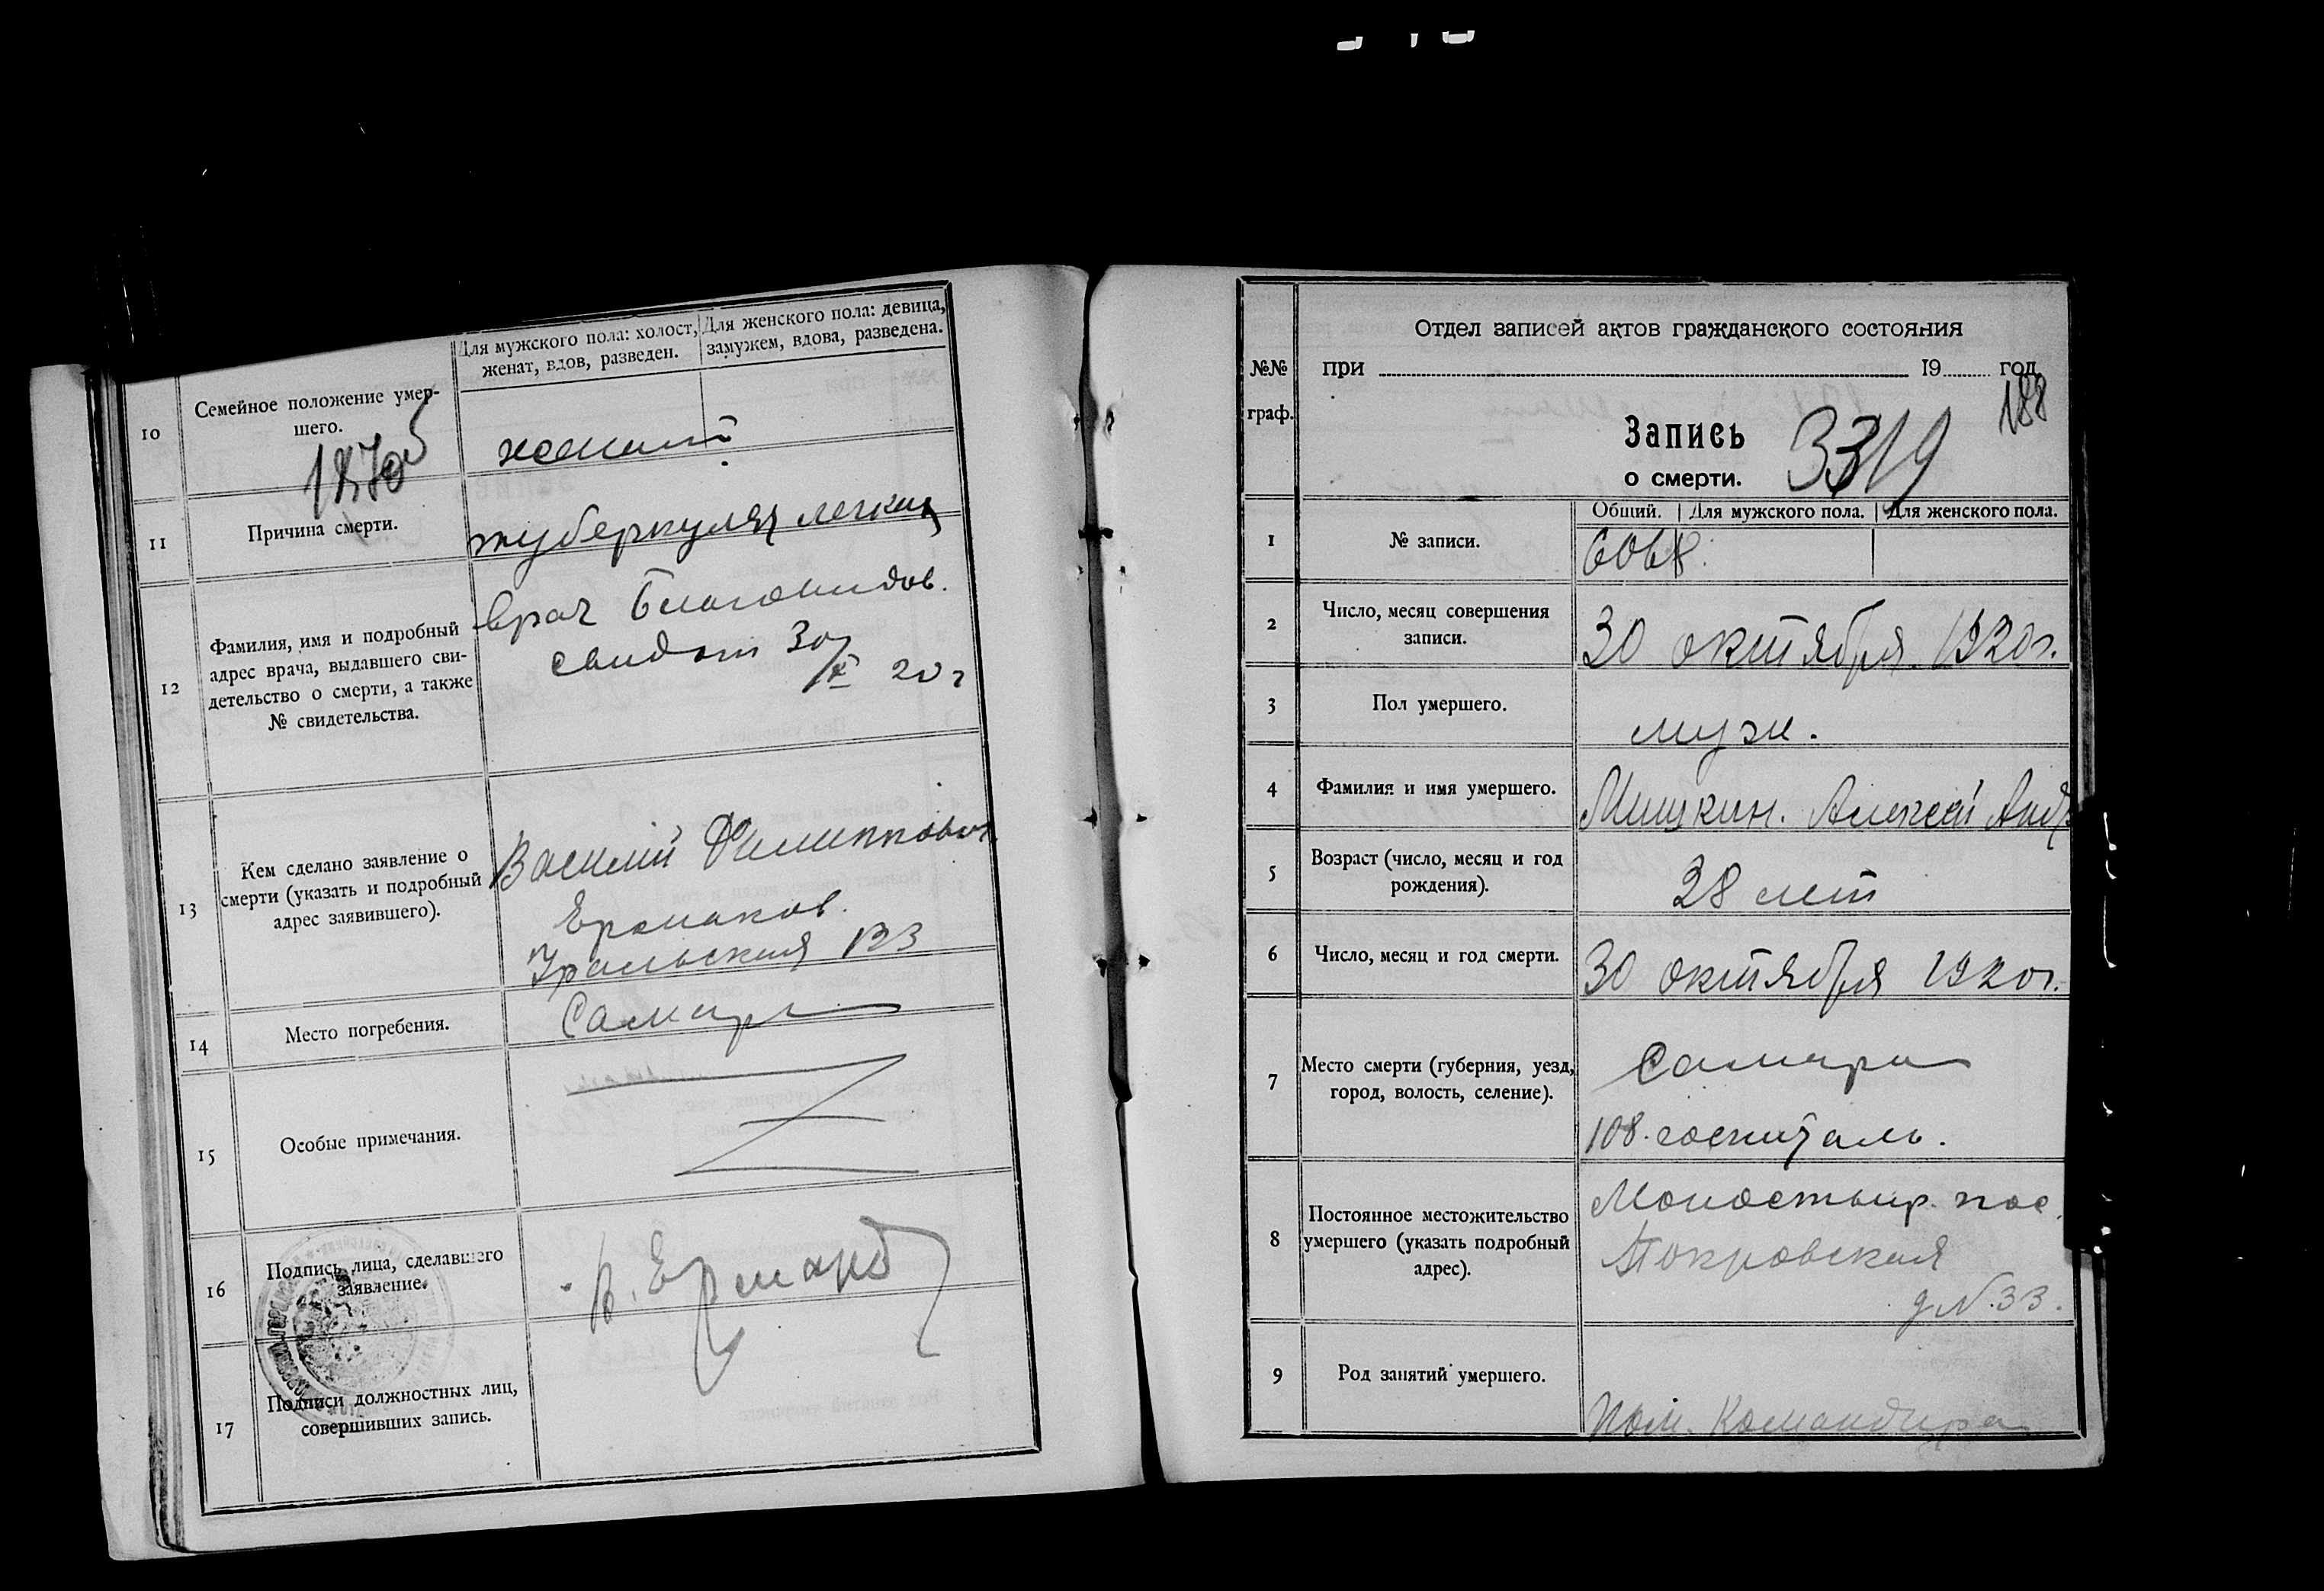 Для мужского пола: холост, женат, вдов, разведен.
Для женского пола: девица, замужем, вдова, разведена.
10
Семейное положение умер-
шего.
женат
11
Причина смерти.
туберкулез легких
12
Фамилия, имя и подробный
адрес врача, выдавшего сви-
детельство о смерти, а также
№ свидетельства.
врач Благовидов.
свидет 30/X 20 г
13
Кем сделано заявление о
смерти (указать и подробный
адрес заявившего).
Василий Филиппович
Ермаков.
Уральская 133
14
Место погребения.
Самара
15
Особые примечания.
16
Подпись лица, сделавшего
заявление.
В. Ермаков
17
Подписи должностных лиц,
совершивших запись.
№№
граф.
Отдел записей актов гражданского состояния
при 19 год.
188
Запись
о смерти.
3319
Общий. Для мужского пола. Для женского пола.
1
№ записи.
6068.
2
Число, месяц совершения
записи.
30 октября 1920 г.
3
Пол умершего.
муж.
4
Фамилия и имя умершего.
Мишкин. Алексей Андр
5
Возраст (число, месяц и год
рождения).
28 лет
6
Число, месяц и год смерти.
30 октября 1920 г.
7
Место смерти (губерния, уезд,
город, волость, селение).
Самара
108. госпиталь.
8
Постоянное местожительство
умершего (указать подробный
адрес).
Монастыр. пос.
Покровская
д N. 33.
9
Род занятий умершего.
Пом. Командира